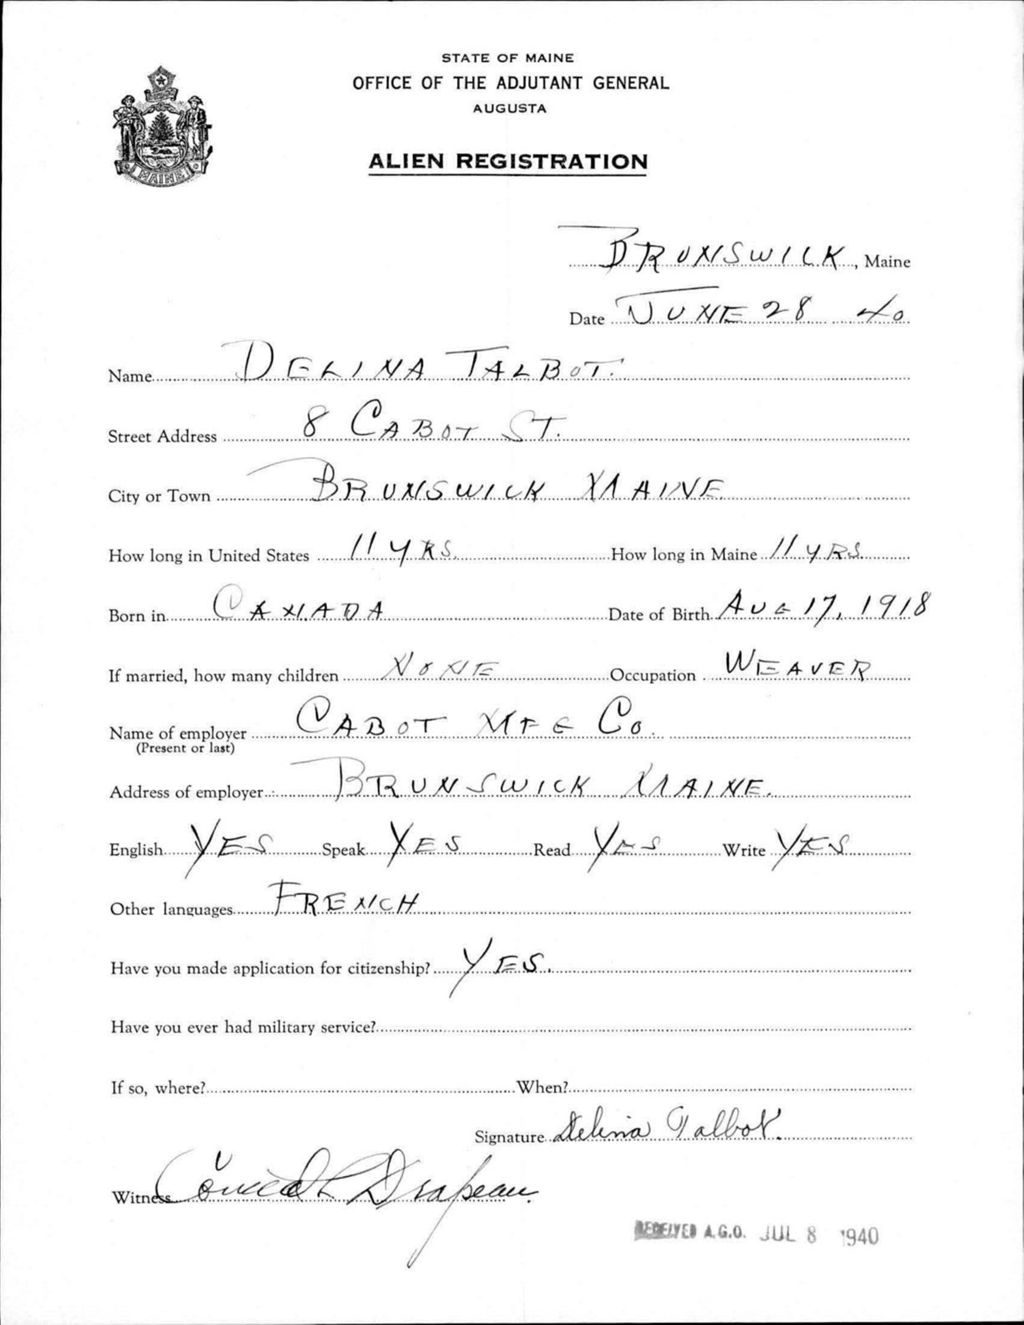 STATE OF MAINE
OFFICE OF THE ADJUTANT GENERAL
AUGUSTA
ALIEN REGISTRATION
MAINE
BRUNSWICK, Maine
Date JUNE 28 40
Name DELINA TALBOT.
Street Address 8 CABOT ST.
City or Town BRUNSWICK MAINE
How long in United States 11 YRS. How long in Maine 11 YRS.
Born in CANADA Date of Birth AUG 17, 1918
If married, how many children NONE Occupation WEAVER
Name of employer CABOT MFG Co.
(Present or last)
Address of employer BRUNSWICK MAINE.
English YES Speak YES Read YES Write YES
Other languages FRENCH
Have you made application for citizenship? YES.
Have you ever had military service?
If so, where? When?
Signature Delina Talbot.
Witness L Drapeau.
RECEIVED A.G.O. JUL 8 1940